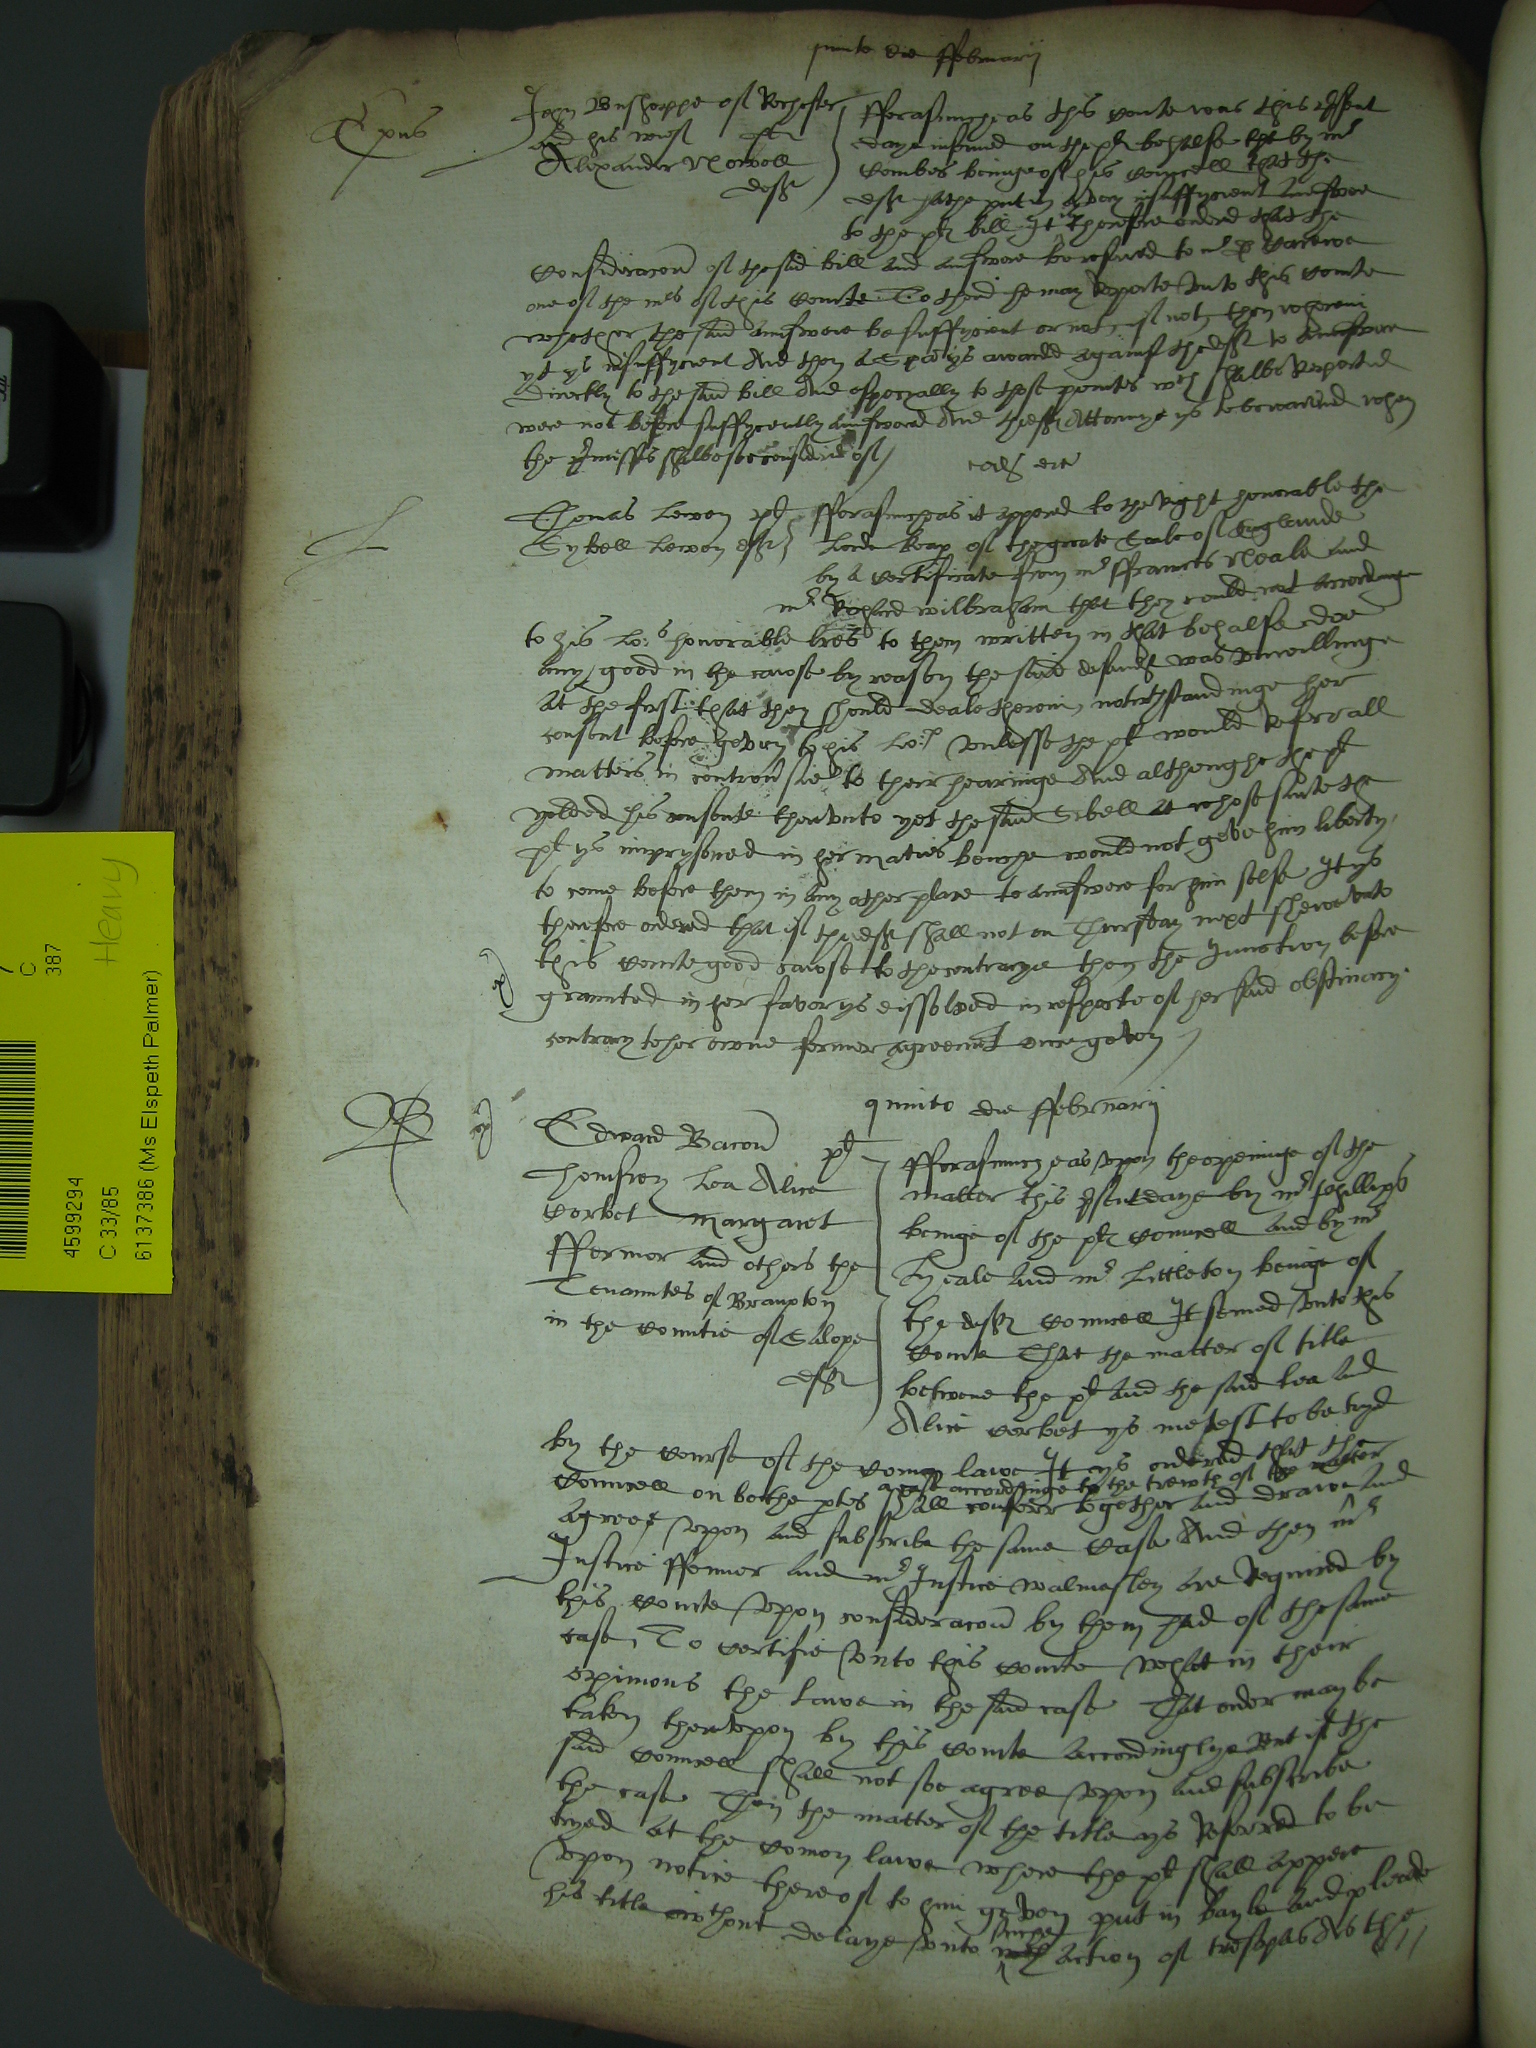 quinto die ffebruarij
John Bushoppe of Rochester
and his wief plt
Alexander Nowell
deft
fforasmuch as this Courte was this p̲sent
daye informed on the plt behalfe that by mr
Combes beinge of his Councell that the
deft hathe put in a very insuffycient Aunswere
to the plt bill It ys therefore ordred that the
Consideracon of the said bill and aunswere be referred to mr D Carewe
one of the mrs of this Courte To thend he may Reporte vnto this Courte
whether the said aunswere be suffycient or not, yf not, then wherein
yt ys insuffycient And then a Spa ys awarded against the deft to Aunswere
directly to the said bill And especyally to those poyntes wch shalbe Reported
were not before suffycyently aunswered And the deft Attorney ys to be warned when
the p̲misses shalbe soe considered of
eod die
L
Thomas Lewen plt
Sybell Lewen deft
fforasmuch as it appered to the Right honorable the
Lorde Keap of the greate Seale of Englande
by a Certificate from mr ffrauncis Neale and
mr Richard Wilbraham that they could not accordinge
to his Lo:s honorable lres to them written in that behalfe doe
any good in the cawse by reason the said defendt was vnwillinge
at the first that they should deale therein, notwthstandinge her
consent before geven to his Lo:p vnlesse the plt would referr all
matters in controu̲sie to their hearinge And althoughe the plt
yelded his consente therevnto yet the said Sibell at whose suite the
plt ys imprysoned in her maties benche would not geve him liberty
to come before them in any other place to aunswere for him selfe It ys
therefore ordered that if the deft shall not on Thursday next shewe vnto
this Courte good cawse to the contrarye then the Iniunction before
graunted in her favor ys dissolved in respecte of her said obstinacy
contrary to her owne former agreemt once geven
quinto die ffebruarij
B
Edward Bacon plt
Homfrey Lea Alice
Corbet Margaret
ffermor and others the
Tenauntes of Brampton
in the Countie of Salope
deft
fforasmuch as vpon the openinge of the
matter this p̲sent daye by mr Phillipps
beinge of the plt Councell and by mr
Heale and mr Littleton beinge of
the deft Councell It semed vnto this
Courte That the matter of title
betwene the plt and the said Lea and
Alice Corbet ys metest to be tryed
by the Course of the Comon lawe It ys ordered that the
Councell on bothe p̲tes shall conferr together and drawe
a case accordinge to the trewth of the matter and
Agree vpon and subscribe the same Case And then mr
Justice ffenner and mr Justice Walmesley are Required by
this Courte vpon consideracon by them had of the same
case, To certifie vnto this Courte what in their
opinions the lawe in the said case That order may be
taken therevpon by this Courte accordinglye But if the
said Councell shall not soe agree vpon and subscribe
the case Then the matter of the title ys Referred to be
tryed at the Comon lawe where the plt shall appere
vpon notice thereof to him geven put in bayle and pleade
his title without delaye vnto suche action of trespas as the
4599294
C 33/85
6137386 (Ms Elspeth Palmer)
Heavy
C
387